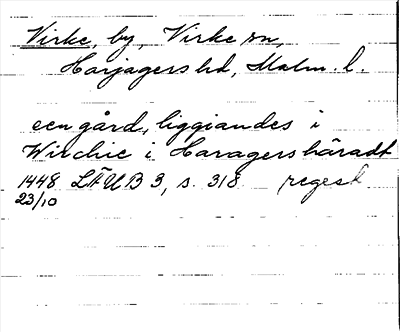 Virke, by, Virke sn,
Harjagers hd, Malm. l.
een gård, liggiandes i
Wirchie i Haragershäradt
1448 LÄUB 3, s. 318 regest
23/10